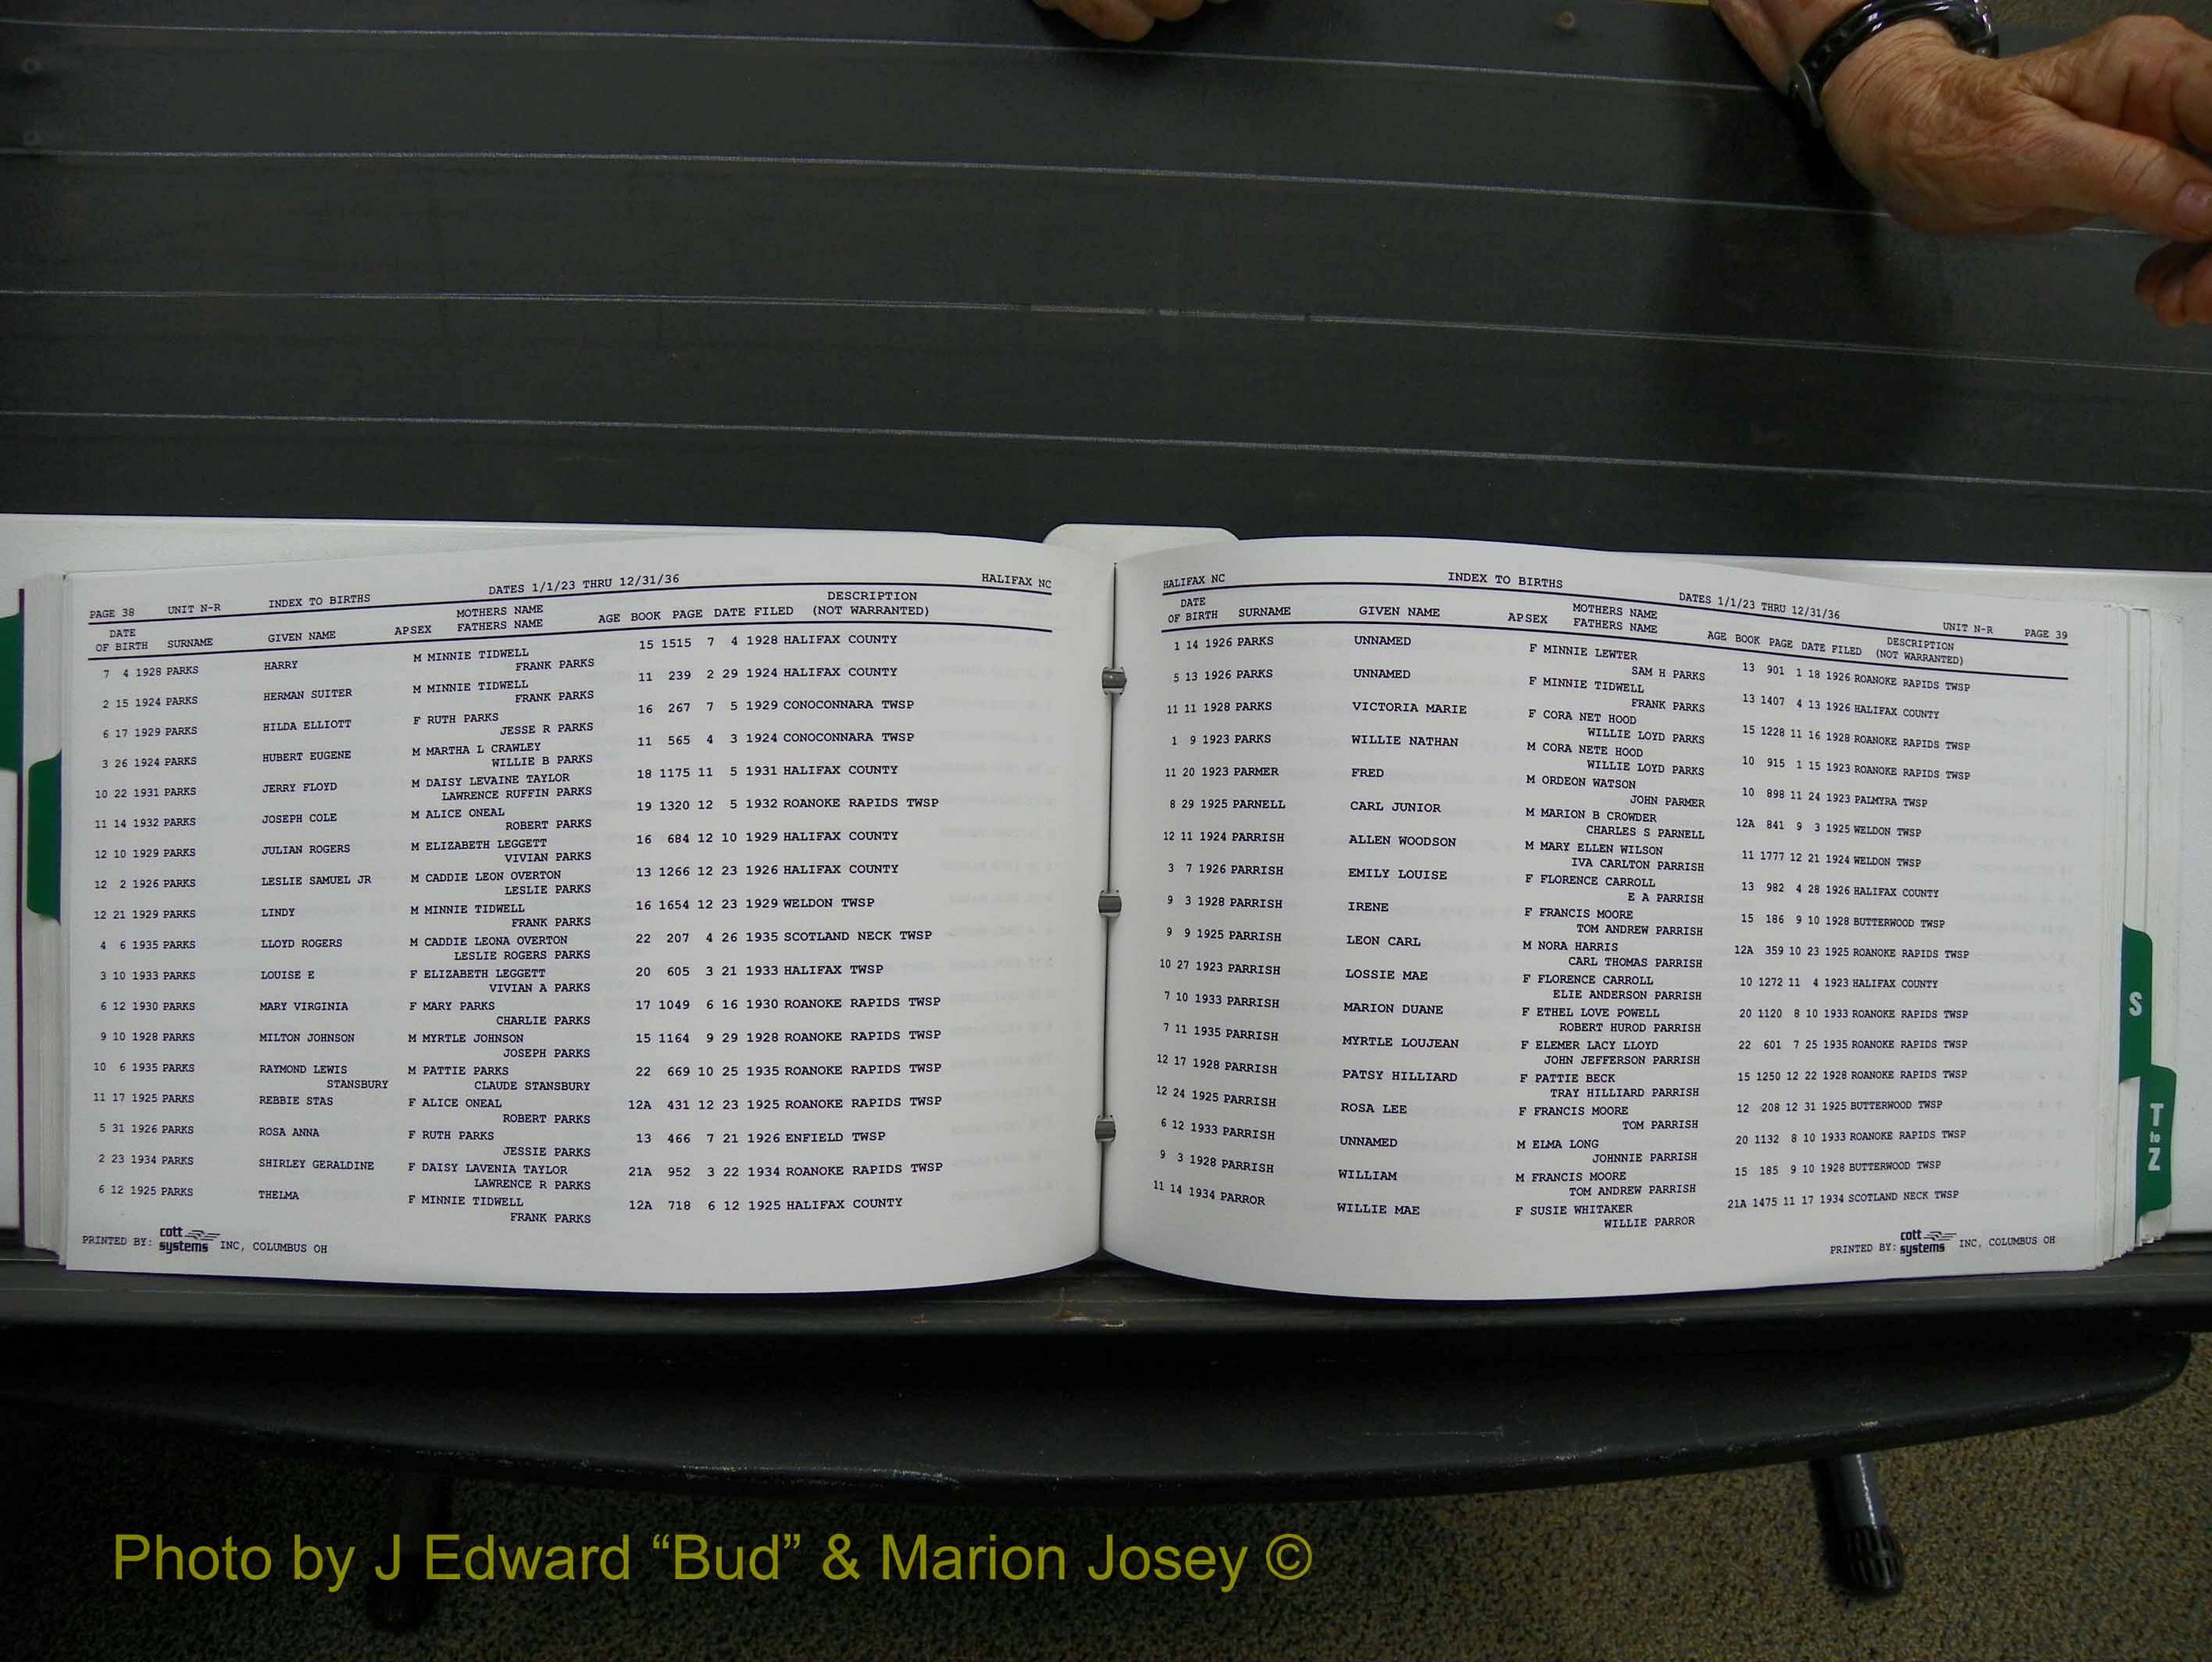 PAGE 38 UNIT N-R INDEX TO BIRTHS DATES 1/1/23 THRU 12/31/36 HALIFAX NC
DATE OF BIRTH SURNAME GIVEN NAME APSEX MOTHERS NAME FATHERS NAME AGE BOOK PAGE DATE FILED DESCRIPTION (NOT WARRANTED)
7 4 1928 PARKS HARRY M MINNIE TIDWELL 15 1515 7 4 1928 HALIFAX COUNTY
FRANK PARKS
2 15 1924 PARKS HERMAN SUITER M MINNIE TIDWELL 11 239 2 29 1924 HALIFAX COUNTY
FRANK PARKS
6 17 1929 PARKS HILDA ELLIOTT F RUTH PARKS 16 267 7 5 1929 CONOCONNARA TWSP
JESSE R PARKS
3 26 1924 PARKS HUBERT EUGENE M MARTHA L CRAWLEY 11 565 4 3 1924 CONOCONNARA TWSP
WILLIE B PARKS
10 22 1931 PARKS JERRY FLOYD M DAISY LEVAINE TAYLOR 18 1175 11 5 1931 HALIFAX COUNTY
LAWRENCE RUFFIN PARKS
11 14 1932 PARKS JOSEPH COLE M ALICE ONEAL 19 1320 12 5 1932 ROANOKE RAPIDS TWSP
ROBERT PARKS
12 10 1929 PARKS JULIAN ROGERS M ELIZABETH LEGGETT 16 684 12 10 1929 HALIFAX COUNTY
VIVIAN PARKS
12 2 1926 PARKS LESLIE SAMUEL JR M CADDIE LEON OVERTON 13 1266 12 23 1926 HALIFAX COUNTY
LESLIE PARKS
12 21 1929 PARKS LINDY M MINNIE TIDWELL 16 1654 12 23 1929 WELDON TWSP
FRANK PARKS
4 6 1935 PARKS LLOYD ROGERS M CADDIE LEONA OVERTON 22 207 4 26 1935 SCOTLAND NECK TWSP
LESLIE ROGERS PARKS
3 10 1933 PARKS LOUISE E F ELIZABETH LEGGETT 20 605 3 21 1933 HALIFAX TWSP
VIVIAN A PARKS
6 12 1930 PARKS MARY VIRGINIA F MARY PARKS 17 1049 6 16 1930 ROANOKE RAPIDS TWSP
CHARLIE PARKS
9 10 1928 PARKS MILTON JOHNSON M MYRTLE JOHNSON 15 1164 9 29 1928 ROANOKE RAPIDS TWSP
JOSEPH PARKS
10 6 1935 PARKS RAYMOND LEWIS M PATTIE PARKS 22 669 10 25 1935 ROANOKE RAPIDS TWSP
STANSBURY CLAUDE STANSBURY
11 17 1925 PARKS REBBIE STAS F ALICE ONEAL 12A 431 12 23 1925 ROANOKE RAPIDS TWSP
ROBERT PARKS
5 31 1926 PARKS ROSA ANNA F RUTH PARKS 13 466 7 21 1926 ENFIELD TWSP
JESSIE PARKS
2 23 1934 PARKS SHIRLEY GERALDINE F DAISY LAVENIA TAYLOR 21A 952 3 22 1934 ROANOKE RAPIDS TWSP
LAWRENCE R PARKS
6 12 1925 PARKS THELMA F MINNIE TIDWELL 12A 718 6 12 1925 HALIFAX COUNTY
FRANK PARKS
PRINTED BY: cott systems INC, COLUMBUS OH
HALIFAX NC INDEX TO BIRTHS DATES 1/1/23 THRU 12/31/36 UNIT N-R PAGE 39
DATE OF BIRTH SURNAME GIVEN NAME APSEX MOTHERS NAME FATHERS NAME AGE BOOK PAGE DATE FILED DESCRIPTION (NOT WARRANTED)
1 14 1926 PARKS UNNAMED F MINNIE LEWTER 13 901 1 18 1926 ROANOKE RAPIDS TWSP
SAM H PARKS
5 13 1926 PARKS UNNAMED F MINNIE TIDWELL 13 1407 4 13 1926 HALIFAX COUNTY
FRANK PARKS
11 11 1928 PARKS VICTORIA MARIE F CORA NET HOOD 15 1228 11 16 1928 ROANOKE RAPIDS TWSP
WILLIE LOYD PARKS
1 9 1923 PARKS WILLIE NATHAN M CORA NETE HOOD 10 915 1 15 1923 ROANOKE RAPIDS TWSP
WILLIE LOYD PARKS
11 20 1923 PARMER FRED M ORDEON WATSON 10 898 11 24 1923 PALMYRA TWSP
JOHN PARMER
8 29 1925 PARNELL CARL JUNIOR M MARION B CROWDER 12A 841 9 3 1925 WELDON TWSP
CHARLES S PARNELL
12 11 1924 PARRISH ALLEN WOODSON M MARY ELLEN WILSON 11 1777 12 21 1924 WELDON TWSP
IVA CARLTON PARRISH
3 7 1926 PARRISH EMILY LOUISE F FLORENCE CARROLL 13 982 4 28 1926 HALIFAX COUNTY
E A PARRISH
9 3 1928 PARRISH IRENE F FRANCIS MOORE 15 186 9 10 1928 BUTTERWOOD TWSP
TOM ANDREW PARRISH
9 9 1925 PARRISH LEON CARL M NORA HARRIS 12A 359 10 23 1925 ROANOKE RAPIDS TWSP
CARL THOMAS PARRISH
10 27 1923 PARRISH LOSSIE MAE F FLORENCE CARROLL 10 1272 11 4 1923 HALIFAX COUNTY
ELIE ANDERSON PARRISH
7 10 1933 PARRISH MARION DUANE F ETHEL LOVE POWELL 20 1120 8 10 1933 ROANOKE RAPIDS TWSP
ROBERT HUROD PARRISH
7 11 1935 PARRISH MYRTLE LOUJEAN F ELEMER LACY LLOYD 22 601 7 25 1935 ROANOKE RAPIDS TWSP
JOHN JEFFERSON PARRISH
12 17 1928 PARRISH PATSY HILLIARD F PATTIE BECK 15 1250 12 22 1928 ROANOKE RAPIDS TWSP
TRAY HILLIARD PARRISH
12 24 1925 PARRISH ROSA LEE F FRANCIS MOORE 12 208 12 31 1925 BUTTERWOOD TWSP
TOM PARRISH
6 12 1933 PARRISH UNNAMED M ELMA LONG 20 1132 8 10 1933 ROANOKE RAPIDS TWSP
JOHNNIE PARRISH
9 3 1928 PARRISH WILLIAM M FRANCIS MOORE 15 185 9 10 1928 BUTTERWOOD TWSP
TOM ANDREW PARRISH
11 14 1934 PARROR WILLIE MAE F SUSIE WHITAKER 21A 1475 11 17 1934 SCOTLAND NECK TWSP
WILLIE PARROR
PRINTED BY: cott systems INC, COLUMBUS OH
S
T to Z
Photo by J Edward “Bud” & Marion Josey ©